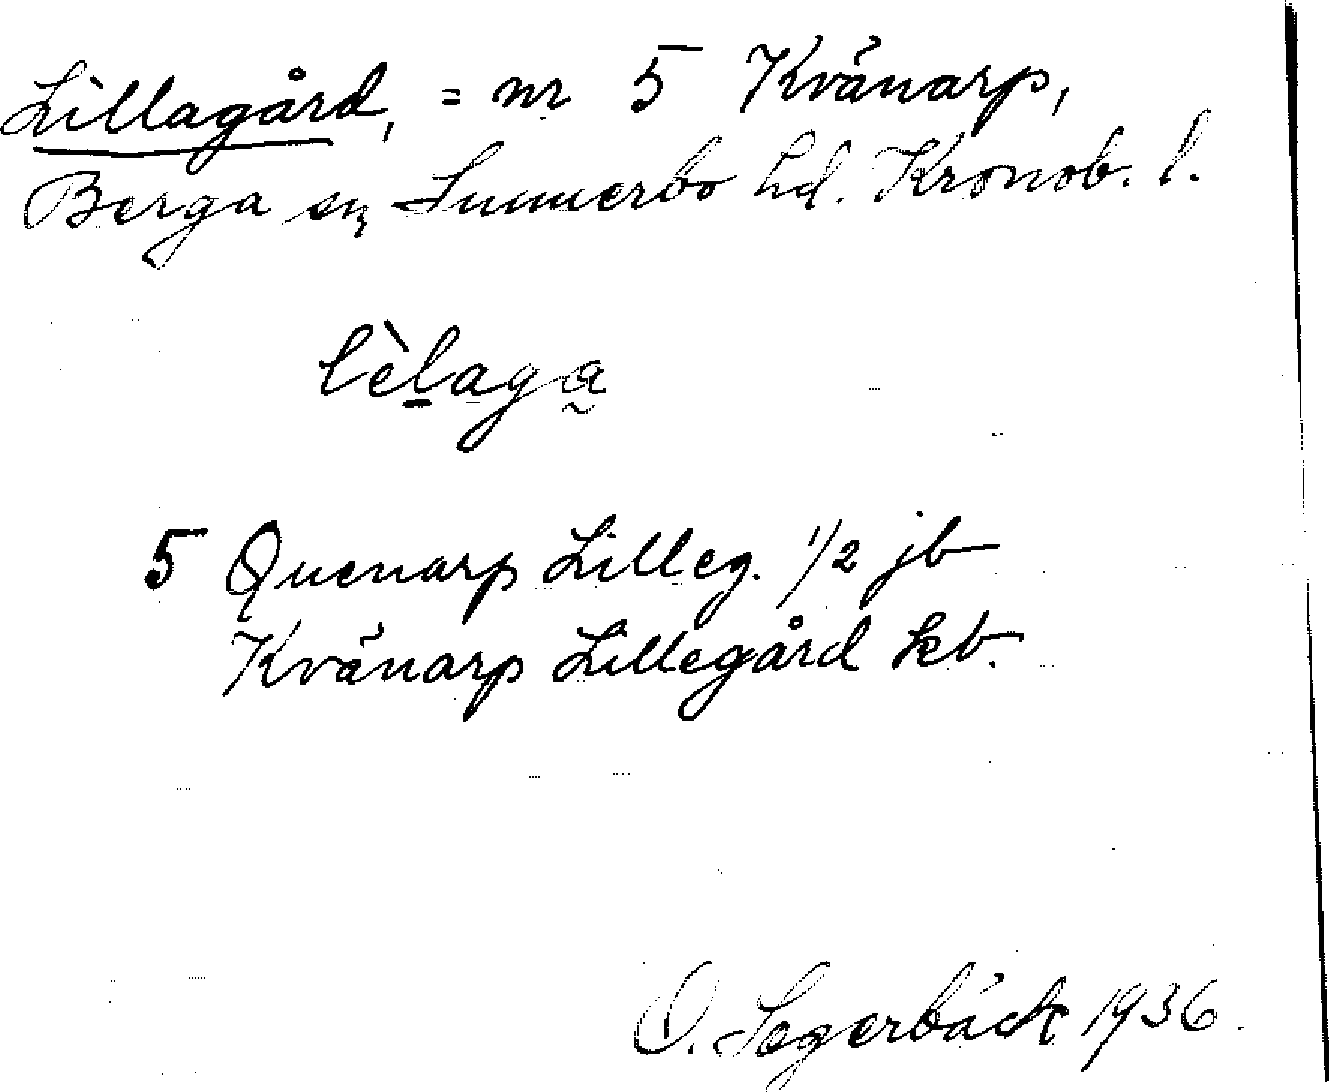 Lillagård, = nr 5 Kvänarp,
Berga sn, Sunnerbo hd. Kronob. l.
lèlaga
5 Quenarp Lilleg. 1/2 jb
Kvänarp Lillegård kb.
O. Segerbäck 1936.